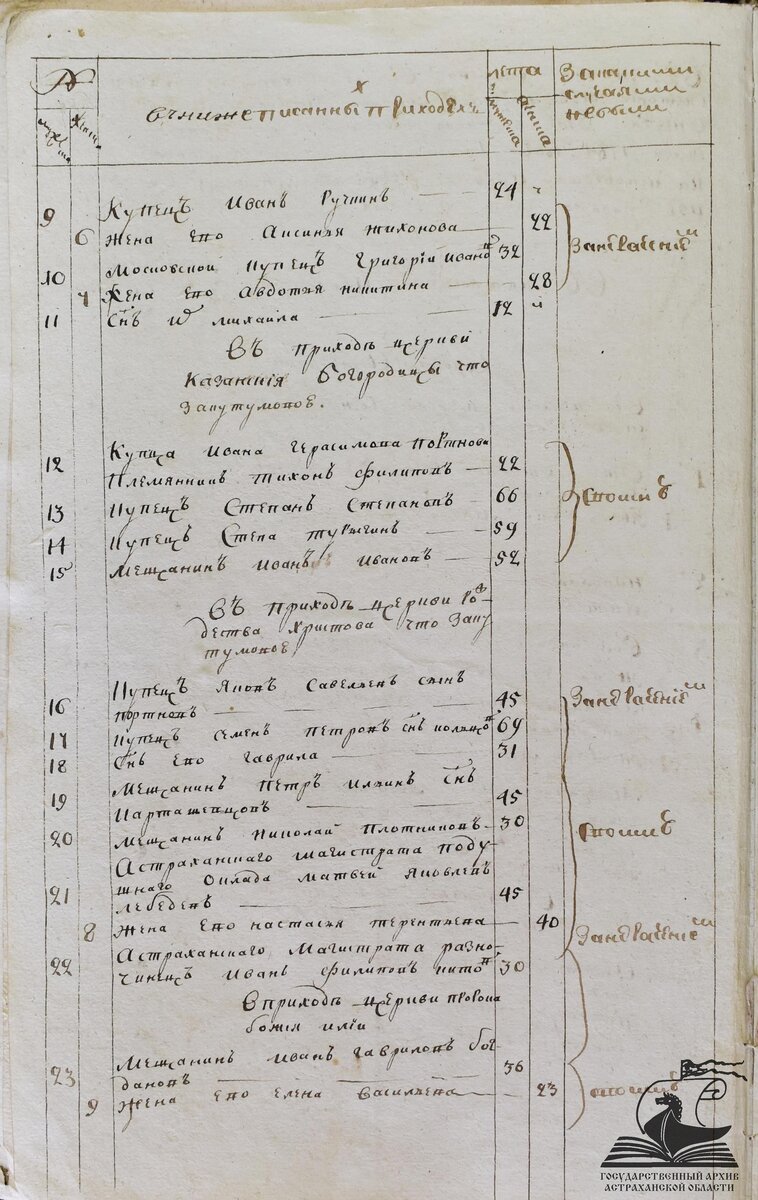 №
мужеска женска
въ нижеписанныхъ приходѣхъ
лета
мужеска женска
За какими
случаями
не были
9 Купецъ Иванъ Ручкинъ 24
6 жена его Аксинья Тихонова 22
За нераченіемъ
10 Московской купецъ Григорій Ивановъ 32
7 Жена его Авдотья Никитина 28
11 Снъ их Михайла 12
Въ приходѣ церкви
Казанскія Богородицы что
за кутумовои.
Купца Ивана Герасимова Портнова
12 Племянникъ Тихонъ Филиповъ 22
13 Купецъ Степанъ Степановъ 66
14 Купецъ Степа 59
15 Мещанинъ Иванъ Ивановъ 52
Въ приходѣ церкви Ро-
дества Христова что за ку
тумовои
Купецъ Яковъ Савельевъ снъ
16 Портновъ 45
За нераченіемъ
17 Купецъ Семенъ Петровъ снъ 69
18 Снъ его Гаврила 31
Мещанинъ Петръ Ильинъ снъ
19 45
20 Мещанинъ Николай Плотниковъ 30
Астраханскаго магистрата поду
шнаго оклада Матвей Яковлевъ
21 Лебедевъ 45
8 Жена его Настасья Терентьева 40
За нераченіемъ
Астраханскаго Магистрата разно
22 чинецъ Иванъ Филиповъ 30
В приходѣ церкви пророка
божія Иліи
Мещанинъ Иванъ Гавриловъ Бог
23 дановъ 36
9 Жена его Елена Васильева 23
ГОСУДАРСТВЕННЫЙ АРХИВ
АСТРАХАНСКОЙ ОБЛАСТИ